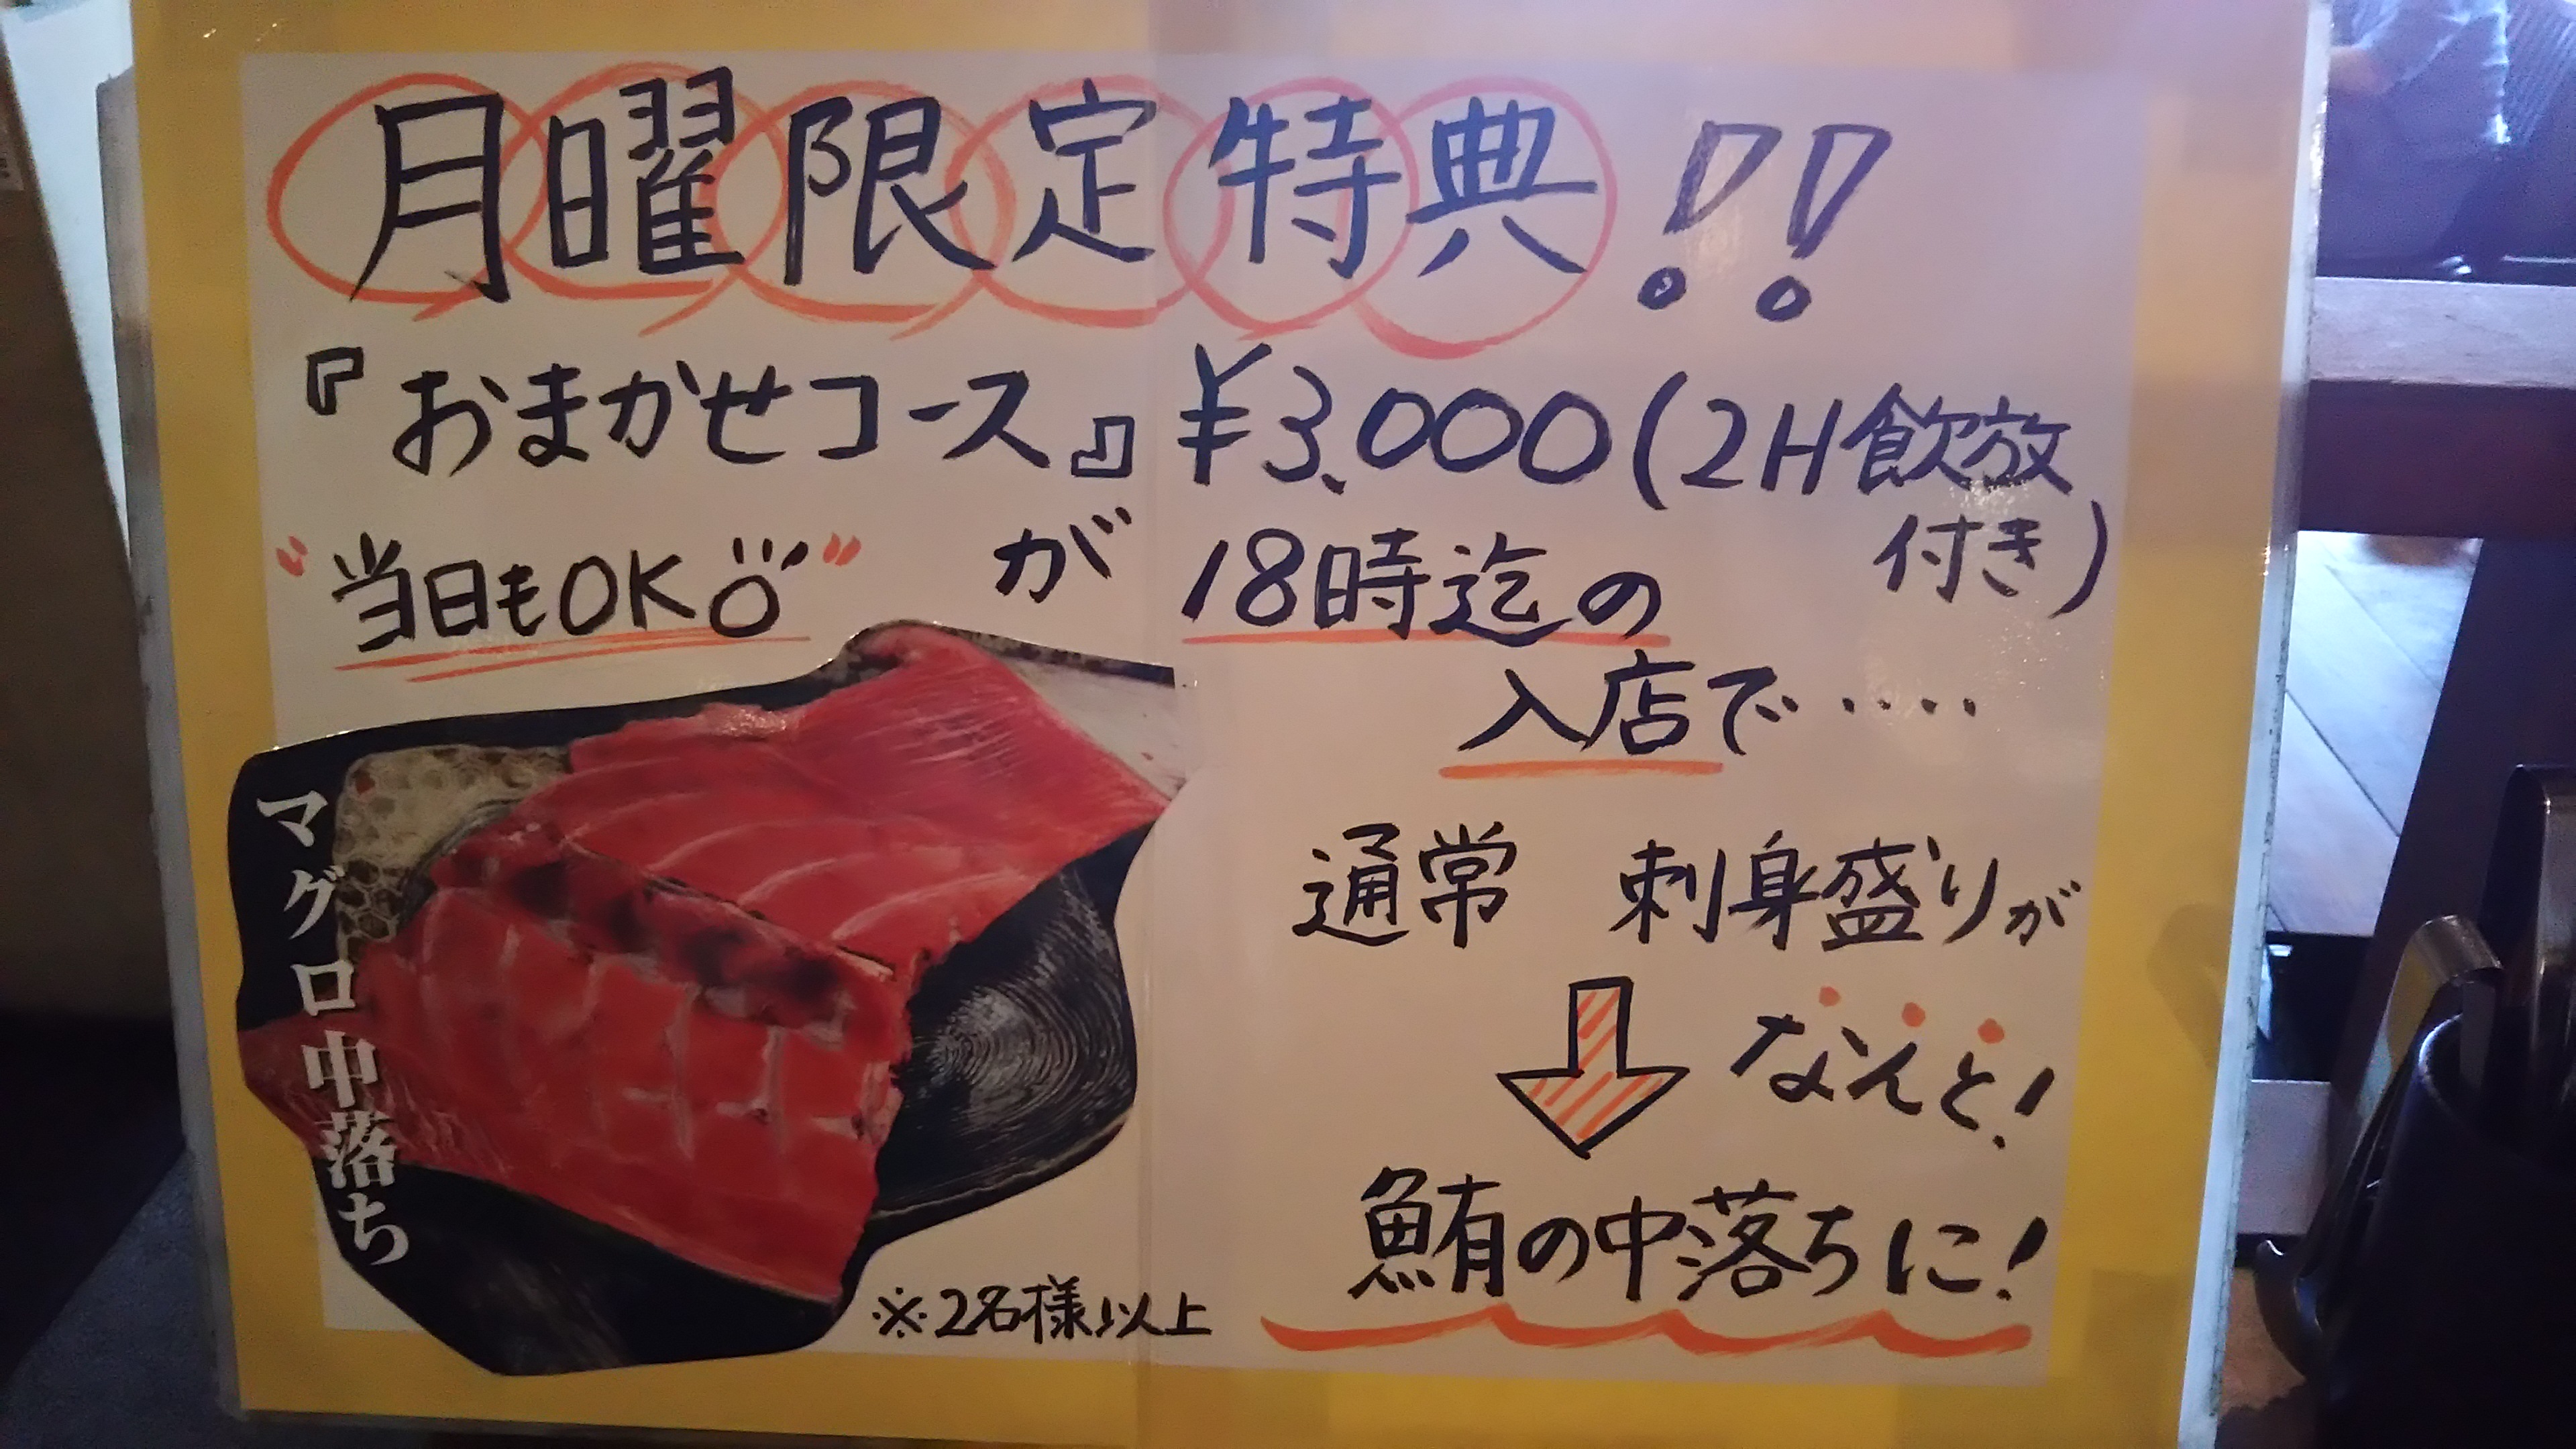 月曜限定特典!!
『おまかせコース』¥3,000(2H飲放付き)
"当日もOK" が 18時迄の
入店で‥‥
通常 刺身盛りが
なんと!
鮪の中落ちに!
※2名様以上
マグロ中落ち